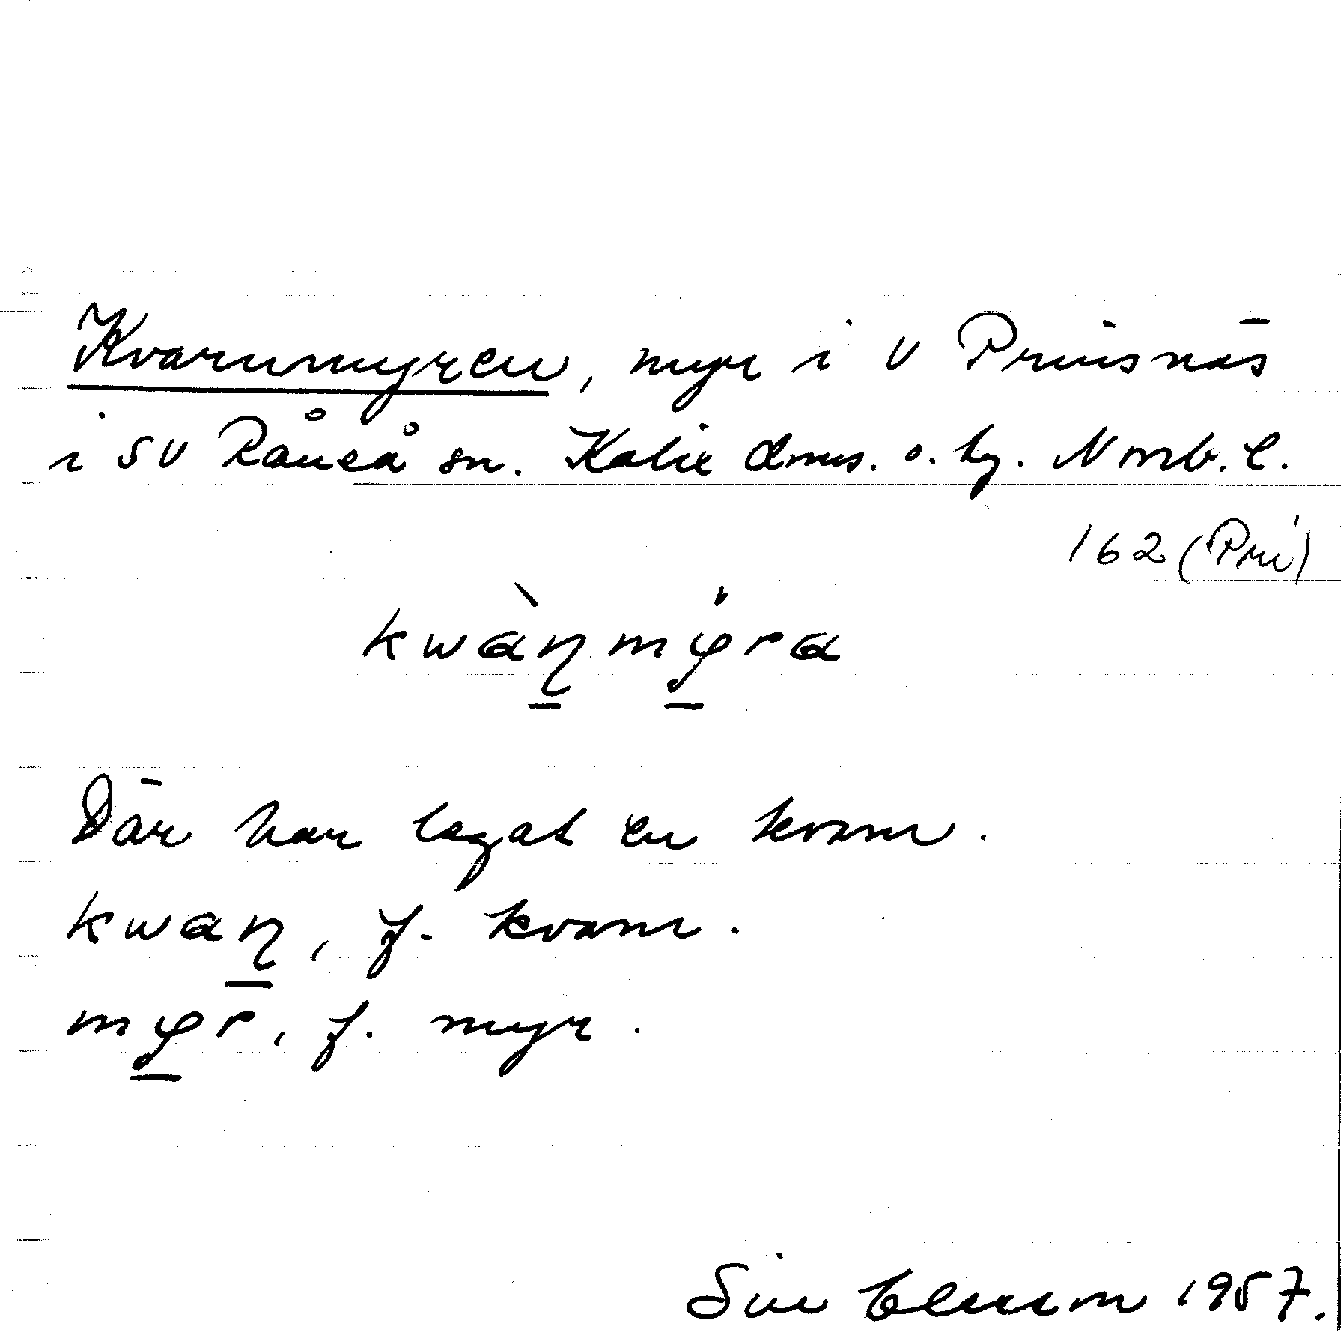 Kvarnmyren, myr i V Prinsnäs
i SV Råneå sn. Kalix dms. o. hg. Norrb. l.
162 (Pri)
kwàn̠my̠ra
Där har legat en kvarn.
kwaɳ̠, f. kvarn.
my̠r, f. myr.
Siv 1957.